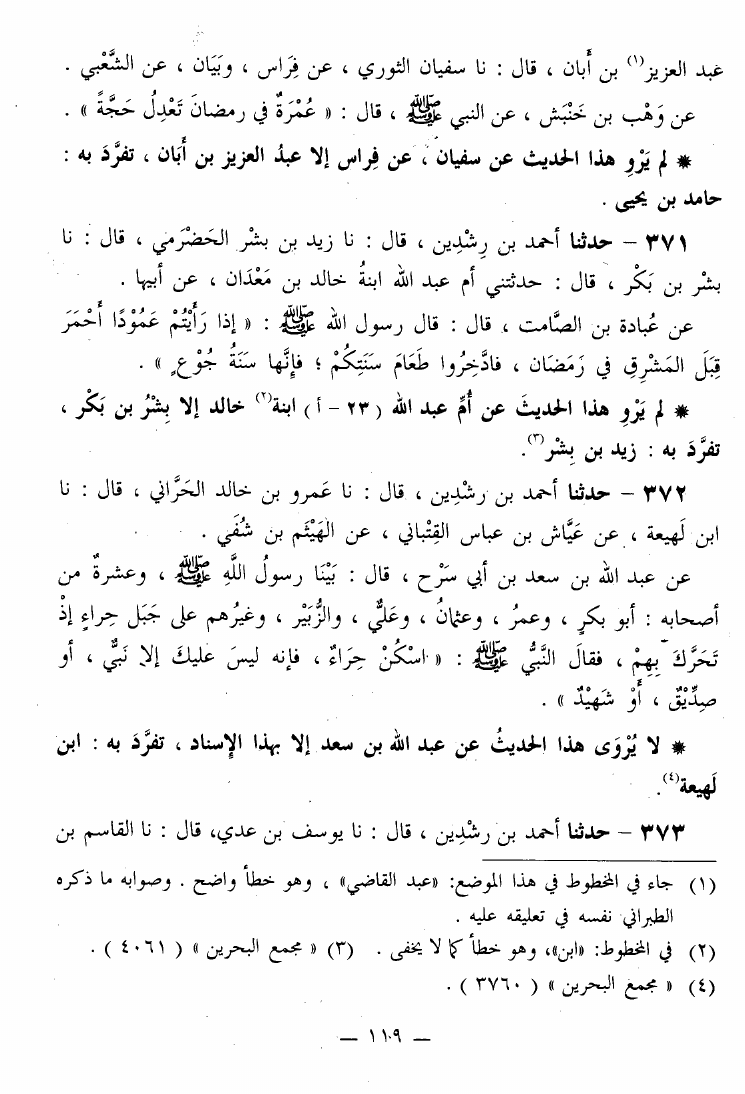 عبد العزيز(١) بن أَبان ، قال : نا سفيان الثوري ، عن فِرَاس ، وبَيَان ، عن الشَّعْبي .
عن وَهْب بن خَنْبَش ، عن النبي ﷺ ، قال : « عُمْرَةٌ في رمضانَ تَعْدِلُ حَجَّةً » .
* لم يَرْوِ هذا الحديث عن سفيان ، عن فِراس إلا عبدُ العزيز بن أَبَان ، تفرَّدَ به :
حامد بن يحيى .
٣٧١ – حدثنا أحمد بن رِشْدِين ، قال : نا زيد بن بشْر الحَضْرَمي ، قال : نا
بشْر بن بَكْر ، قال : حدثتني أم عبد الله ابنةُ خالد بن مَعْدَان ، عن أبيها .
عن عُبادة بن الصَّامت ، قال : قال رسول الله ﷺ : « إذا رَأَيْتُمْ عَمُوْدًا أَحْمَرَ
قِبَلَ المَشْرِقِ في رَمَضَان ، فادَّخِرُوا طَعَامَ سَنَتِكُمْ ؛ فإنَّها سَنَةُ جُوْعٍ » .
* لم يَرْوِ هذا الحديثَ عن أُمِّ عبد الله ( ٢٣ – أ ) ابنة(٢) خالد إلا بِشْرُ بن بَكْر ،
تفرَّدَ به : زيد بن بِشْر(٣).
٣٧٢ – حدثنا أحمد بن رشْدِين ، قال : نا عَمرو بن خالد الحَرَّاني ، قال : نا
ابن لَهيعة ، عن عَيَّاش بن عباس القِتْباني ، عن الهَيْثَم بن شُفَي .
عن عبد الله بن سعد بن أبي سَرْح ، قال : بَيْنَا رسولُ اللَّهِ ﷺ ، وعشرةٌ من
أصحابه : أبو بكرٍ ، وعمرُ ، وعثمانُ ، وعَليٌّ ، والزُّبَيْر ، وغيرُهم على جَبَل حِراءٍ إذْ
تَحَرَّكَ بِهِمْ ، فقالَ النَّبيُّ ﷺ : « اسْكُنْ حِرَاءٌ ، فإنه ليسَ عليكَ إلا نَبيٌّ ، أو
صِدِّيْقٌ ، أَوْ شَهِيْدٌ » .
* لا يُرْوَى هذا الحديثُ عن عبد الله بن سعد إلا بهذا الإسناد ، تفرَّدَ به : ابن
لَهيعة(٤).
٣٧٣ – حدثنا أحمد بن رِشْدِين ، قال : نا يوسف بن عدي، قال : نا القاسم بن
(١) جاء في المخطوط في هذا الموضع: «عبد القاضي» ، وهو خطأ واضح . وصوابه ما ذكره
الطبراني نفسه في تعليقه عليه .
(٢) في المخطوط: «ابن»، وهو خطأ كما لا يخفى . (٣) « مجمع البحرين » ( ٤٠٦١ ) .
(٤) « مجمع البحرين » ( ٣٧٦٠ ) .
– ١١٠٩ –